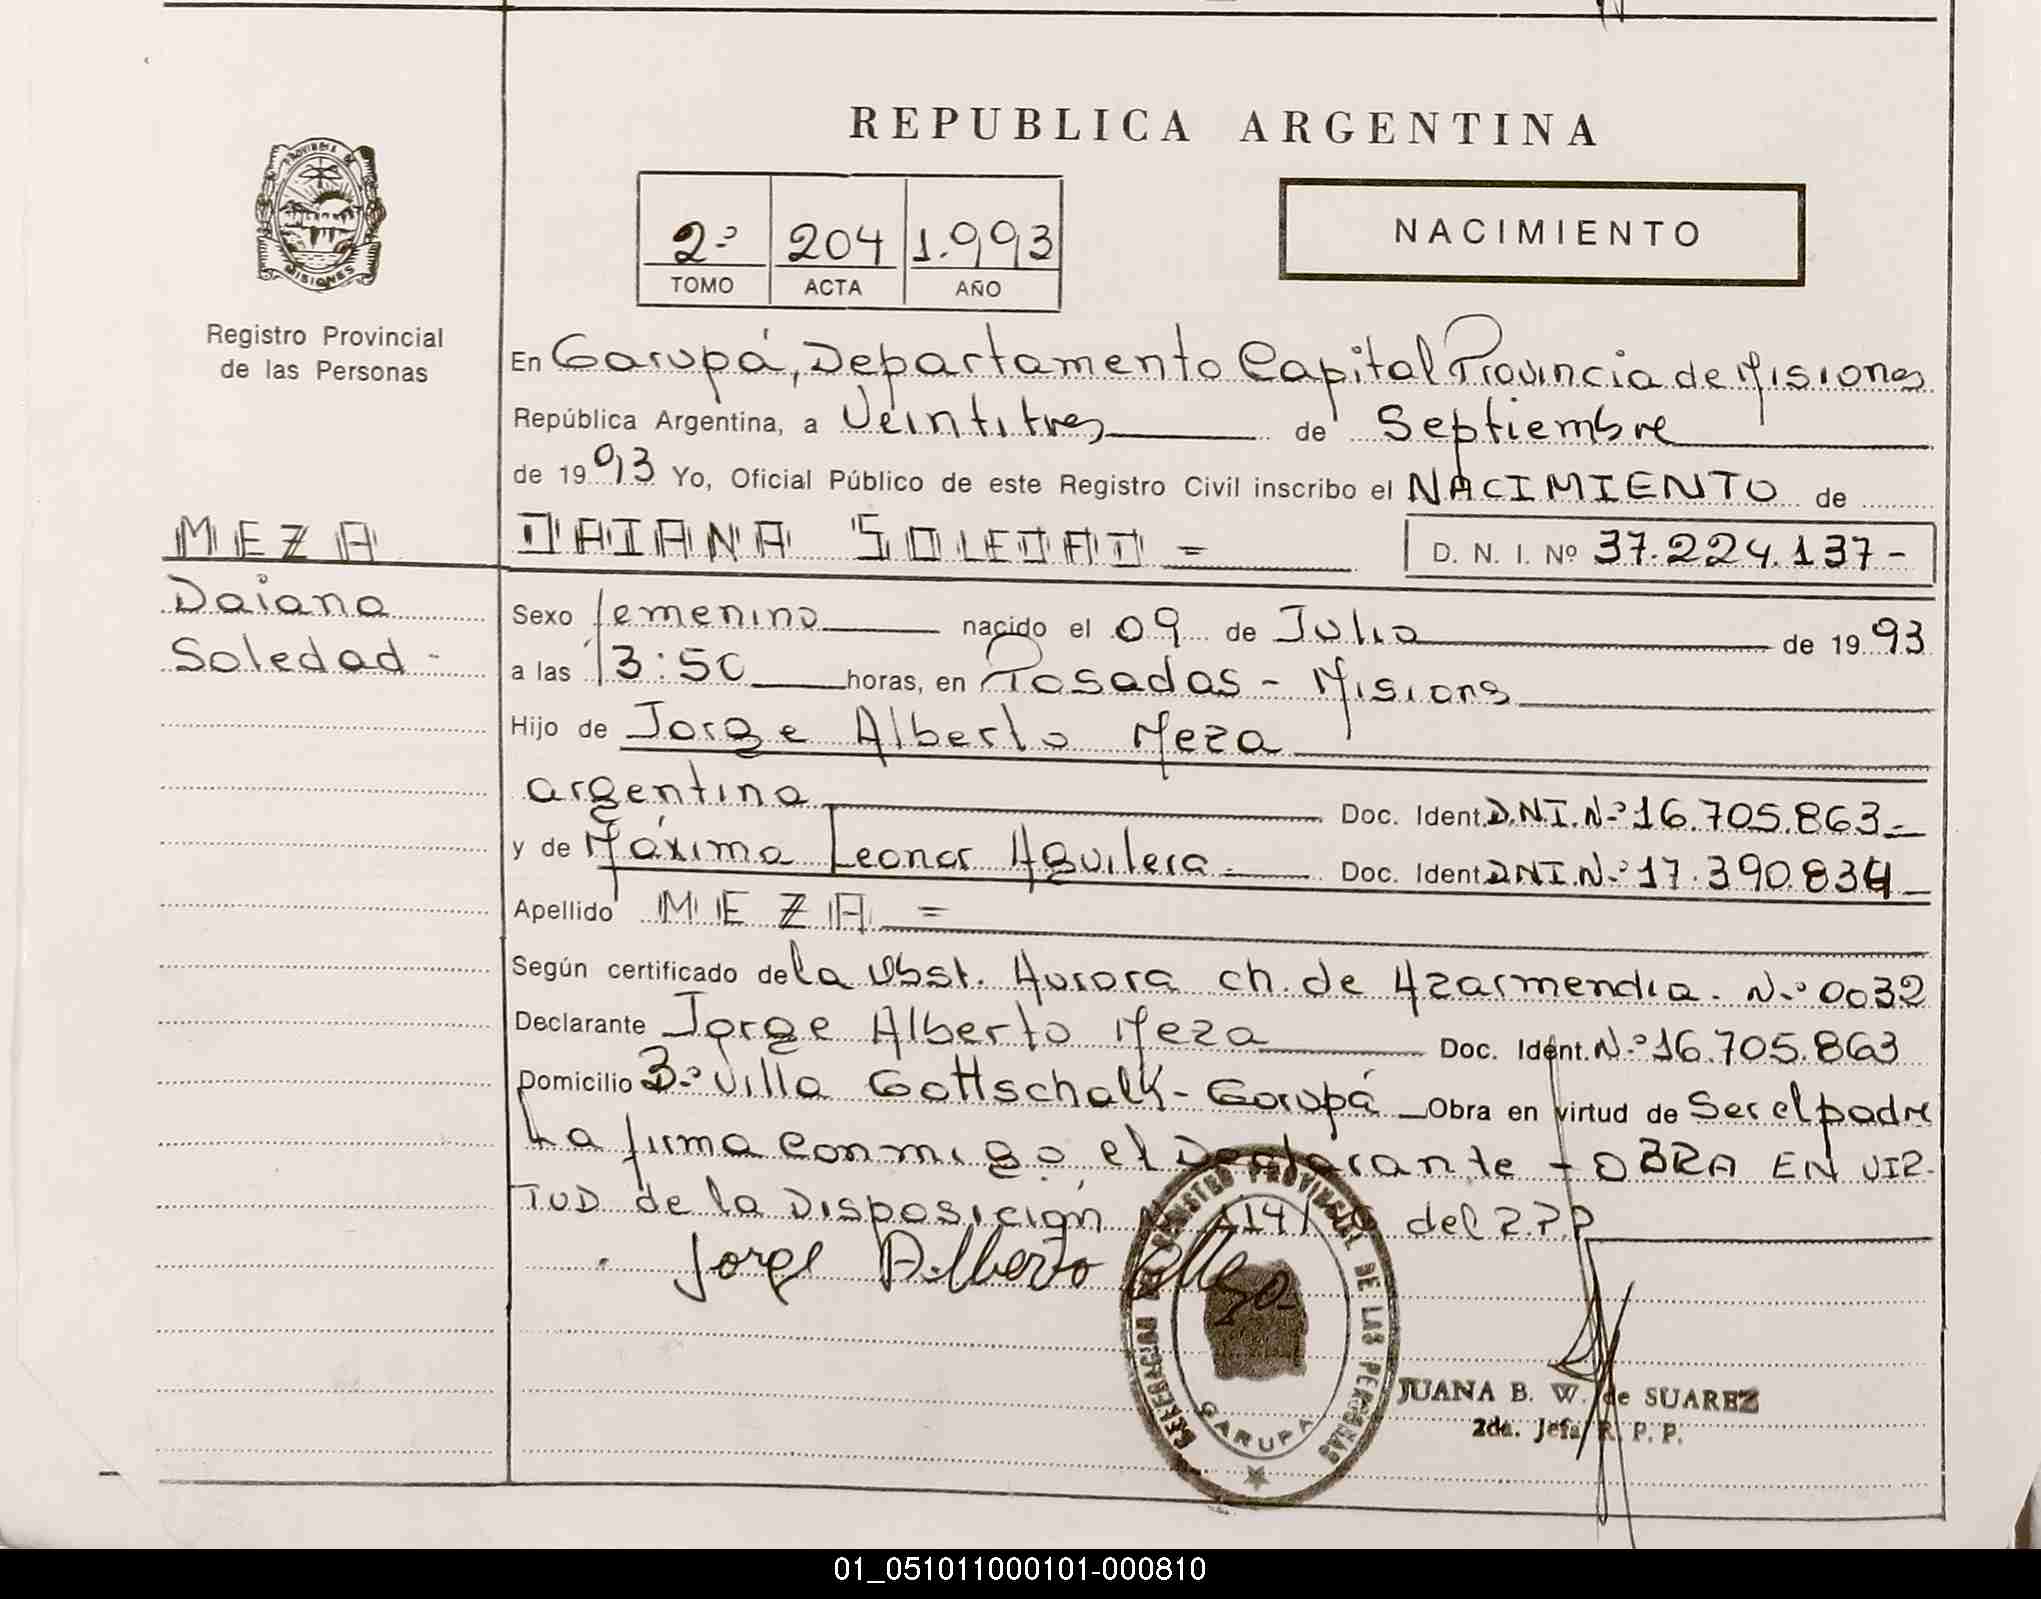 REPUBLICA ARGENTINA
PROVINCIA DE
MISIONES
Registro Provincial
de las Personas
2º 204 1.993
TOMO ACTA AÑO
NACIMIENTO
En Garupá, Departamento Capital Provincia de Misiones
República Argentina, a Veintitres de Septiembre
de 1993 Yo, Oficial Público de este Registro Civil inscribo el NACIMIENTO de
MEZA
DAIANA SOLEDAD =
D. N. I. Nº 37.224.137-
Daiana
Soledad -
Sexo femenino nacido el 09 de Julio de 1993
a las 13:50 horas, en Posadas - Misions
Hijo de Jorge Alberto Meza
argentina Doc. Ident. D.N.I.Nº 16.705.863-
y de Máxima Leonor Aguilera - Doc. Ident. DNI.Nº 17.390.834-
Apellido MEZA =
Según certificado de la Obst. Aurora ch. de Azarmendia. Nº 0032
Declarante Jorge Alberto Meza Doc. Ident. Nº 16.705.863
Domicilio Bº Villa Gottschalk - Garupá Obra en virtud de Ser el padre
La firma conmigo el Declarante - OBRA EN VIR-
TUD de la Disposición del
Jorge Alberto
DELEGACION DEL REGISTRO PROVINCIAL DE LAS PERSONAS
GARUPA
JUANA B. W. de SUAREZ
2da. Jefa R. P. P.
01_051011000101-000810